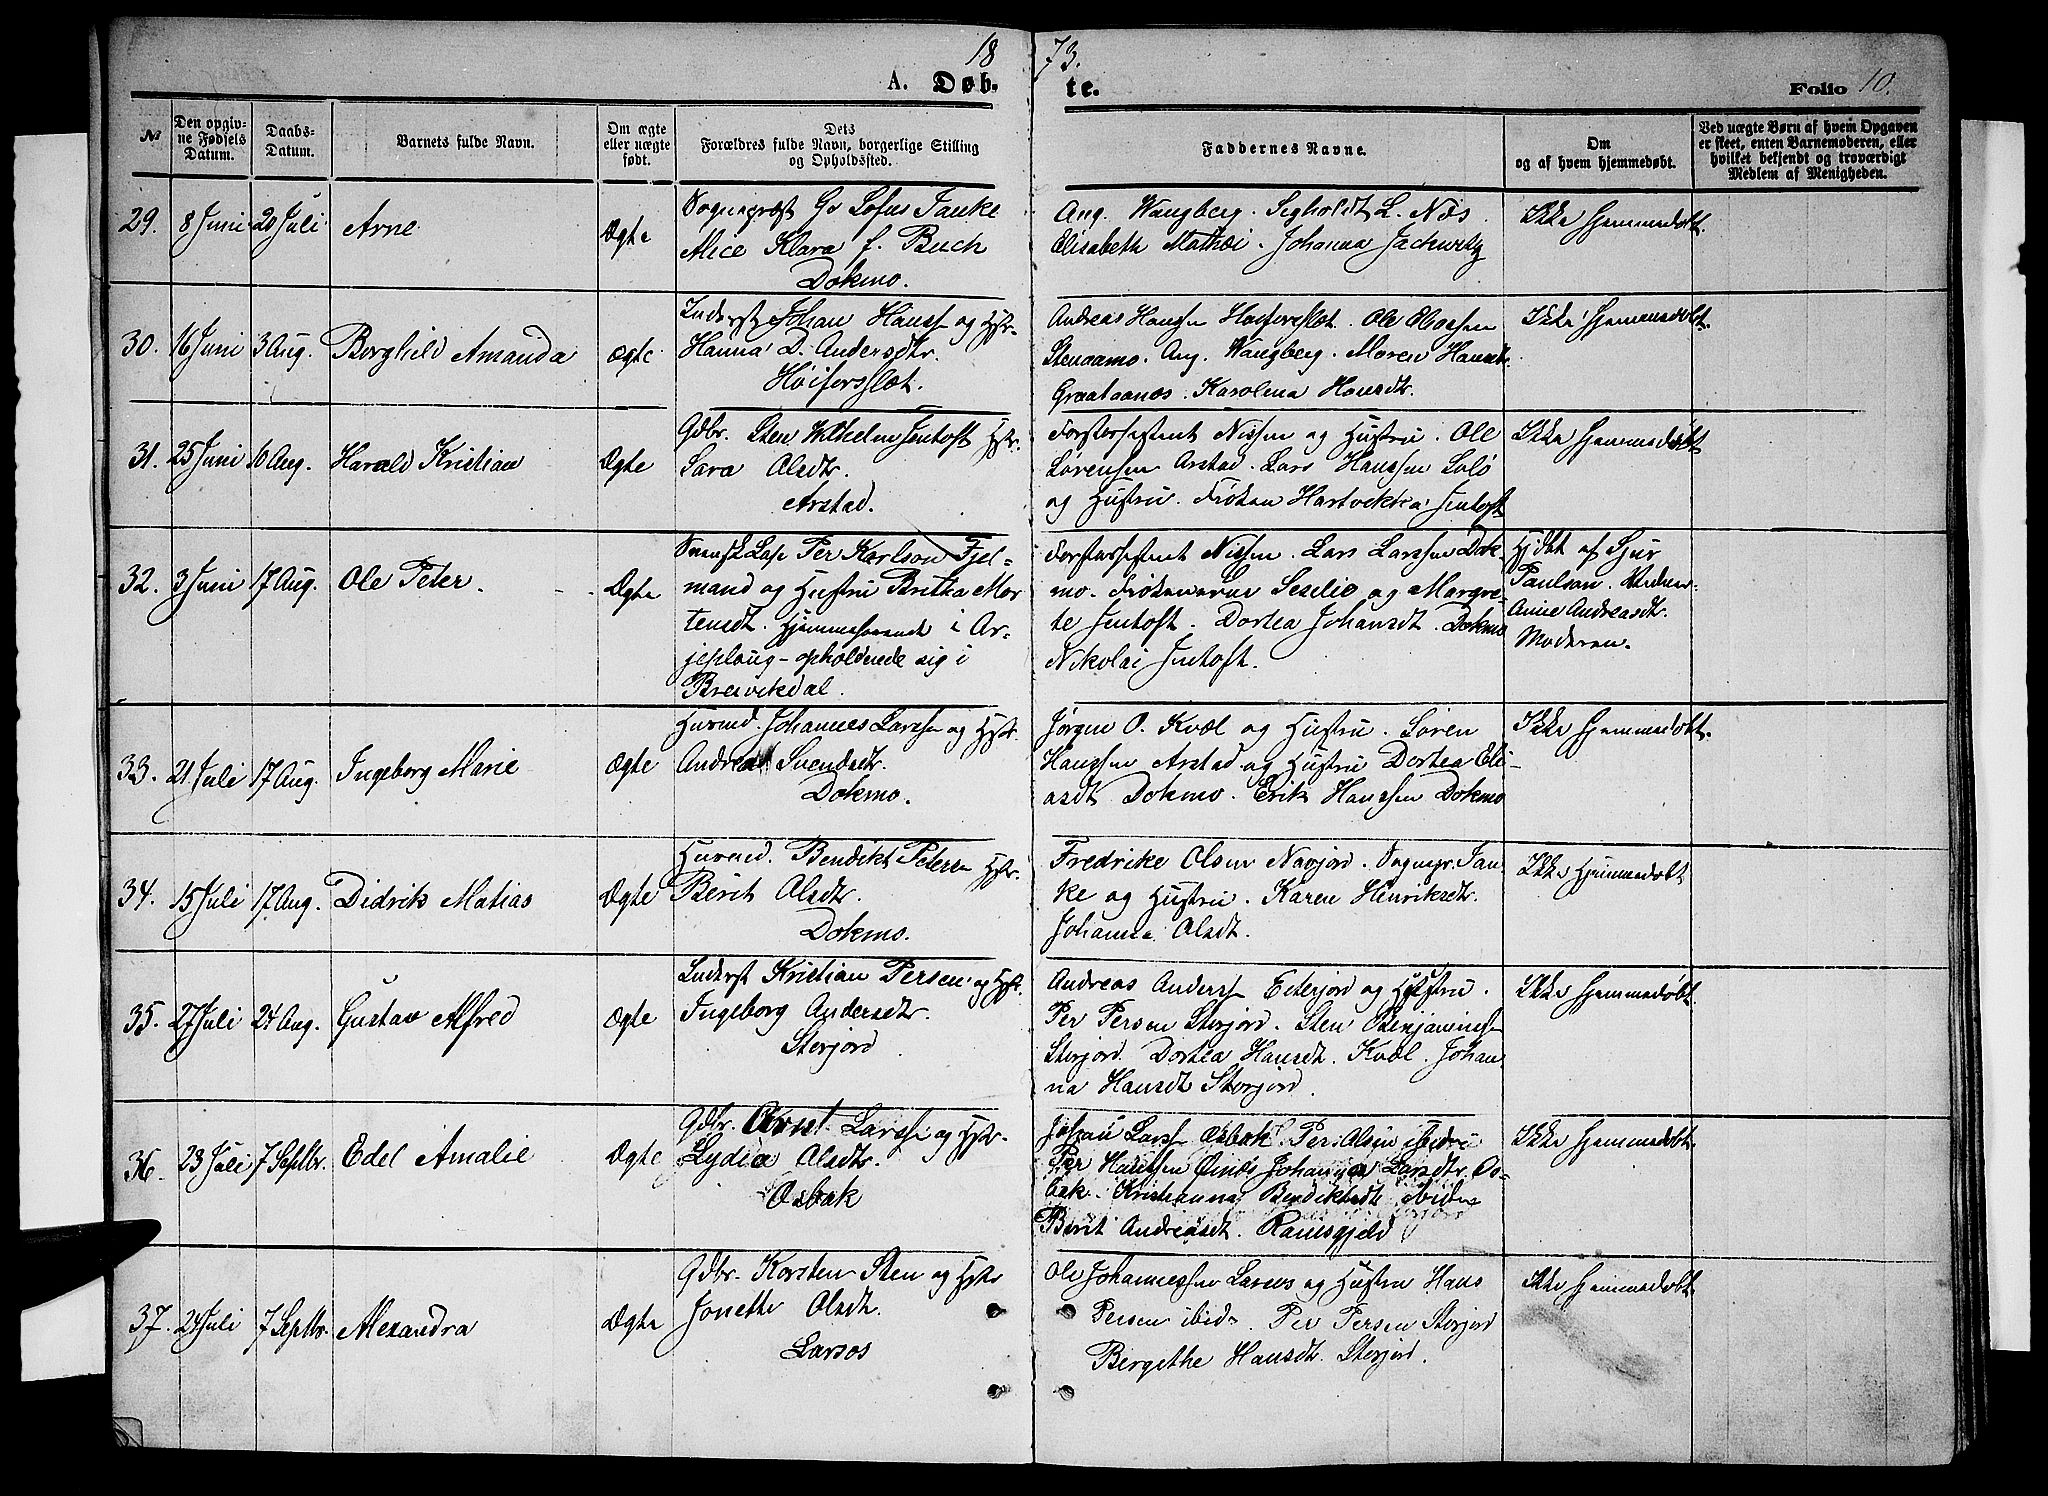 18 73.
A. Døb- te. Folio 10.
№
Den opgiv-
ne Fødsels
Datum.
Daabs-
Datum.
Barnets fulde Navn.
Om ægte
eller uægte
født.
Dets
Forældres fulde Navn, borgerlige Stilling
og Opholdssted.
Faddernes Navne.
Om
og af hvem hjemmedøbt.
Ved uægte Børn af hvem Opgaven
er skeet, enten Barnemoderen, eller
hvilket bekjendt og troværdigt
Medlem af Menigheden.
29. 8 Juni 20 Juli Arne Ægte
Sognepræst Sofus Tanke
Alice Klara f. Buch
Dokmo.
Aug. Wangberg. L. Næs
Elisabeth Johanna
Ikke hjemmedøbt.
30. 16 Juni 3 Aug. Borghild Amanda ægte
Inderst Johan Hanss og Hstr.
Hanna D. Andersdtr.
Høiforslet.
Andreas Hansen Høiforslet. Ole
Aug. Wangberg. Maren
Karolina Hansdtr.
Ikke hjemmedøbt.
31. 25 Juni 10 Aug. Harald Kristian Ægte
Gdbr. Sten Wilhelm Jentoft Hstr.
Sara Olsdtr.
Arstad.
Nissen og Hustru. Ole
Sørensen Arstad. Lars Hanssen
og Hustru. Frøken Hartvikka Jentoft
Ikke hjemmedøbt
32. 3 Juni 17 Aug. Ole Peter. Ægte
Svensk Lap Per Karlson Fjel-
mand og Hustru Britha Mor
tensdt. Hjemmehørende i Ar-
jeplaug - opholdende sig i
Breivikdal.
Nissen. Lars Larssen Dok-
mo. Frøknerne Sesilie og Margre-
te Jentoft. Dortea Johansdt. Dokmo
Nikolai Jentoft.
Hjdøbt af Sjur
Paulsen.
Anne Andreasdt.
Moderen.
33. 21 Juli 17 Aug. Ingeborg Marie ægte
Husmd. Johannes Larssen og Hstr.
Svendsdtr.
Dokmo.
Jørgen O. Kvæl og Hustru. Søren
Hanssen Arstad og Hustru Dortea Eli-
asdt Dokmo. Erik Hanssen Dokmo
Ikke hjemmedøbt.
34. 15 Juli 17 Aug. Didrik Matias Ægte
Husmd. Bendikt Petersn Hstr.
Berit Olsdtr.
Dokmo.
Fredrike Olsen Navjord. Sognepr. Tan-
ke og Hustru. Karen Henriksdtr.
Johanna Olsdt.
Ikke hjemmedøbt
35. 27 Juli 24 Aug. Gustav Alfred ægte
Inderst Kristian Persen og Hstr.
Ingeborg Andersdtr.
Storjord
Andreas Anderss Eiterjord og Hustru.
Per Persen Storjord. Sten Benjaminsen
Storjord. Dortea Hansdt. Kvæl. Johan
na Hansdt Storjord.
Ikke hjemmedøbt.
36. 23 Juli 7 Septbr. Edel Amalie Ægte
Gdbr. Arnt Larssen og Hstr.
Lydia Olsdtr.
Osbak
Johan Larss Osbak. Per Olsen ibidm
Per Hanssen Øinæs Johanna Larsdtr. Os-
bak. Kristianna Bendiktsdt ibidm
Berit Andreasdt. Ranesgjeld
Ikke hjemmedøbt
37. 24 Juli 7 Septbr. Alexandra Ægte
Gdbr. Korsten Sten og Hstr
Jonette Olsdt.
Larsos
Ole Johannessen Larsos og Hustru Hans
Persen ibidm. Per Persen Storjord
Bergithe Hansdt. Storjord.
Ikke hjemmedøbt